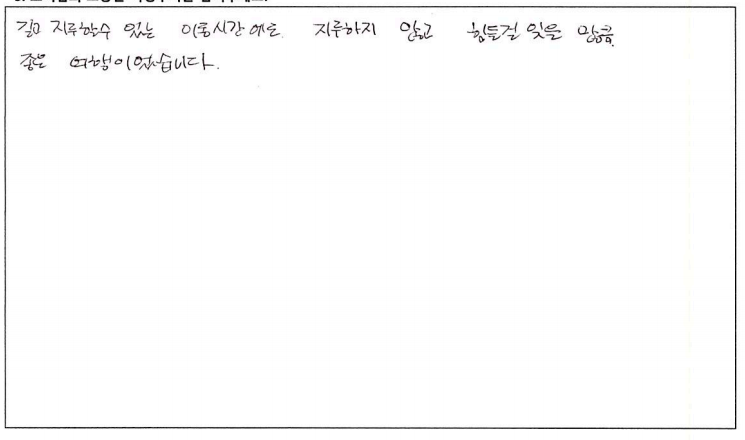 길고 지루할수 있는 이동시간에도 지루하지 않고 힘든걸 잊을 만큼
좋은 여행이었습니다.